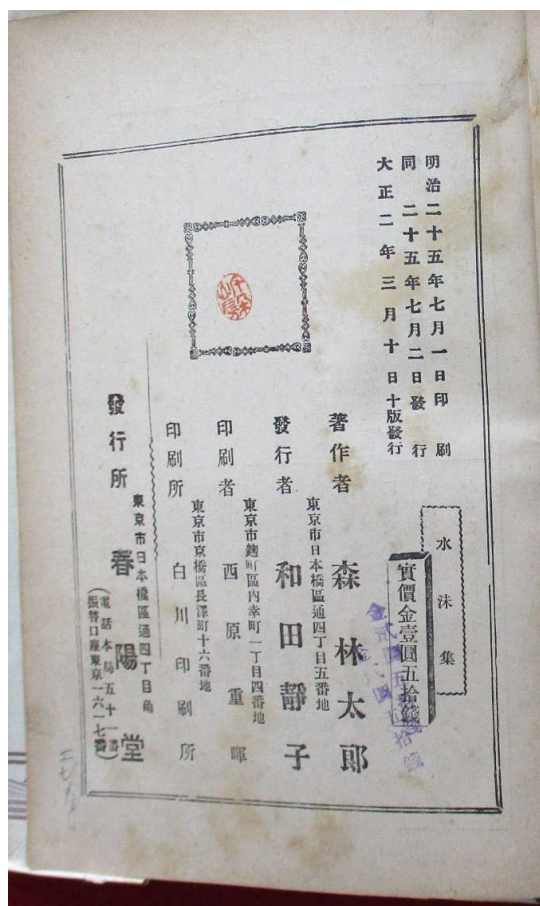 明治二十五年七月一日印刷
同二十五年七月二日發行
大正二年三月十日十版發行
水沫集
實價金壹圓五拾錢
著作者 森林太郎
東京市日本橋區通四丁目五番地
發行者 和田靜子
東京市麴町區內幸町一丁目四番地
印刷者 西原重暉
東京市京橋區長澤町十六番地
印刷所 白川印刷所
東京市日本橋區通四丁目角
發行所 春陽堂
電話本局五十一番
振替口座東京一六一七番